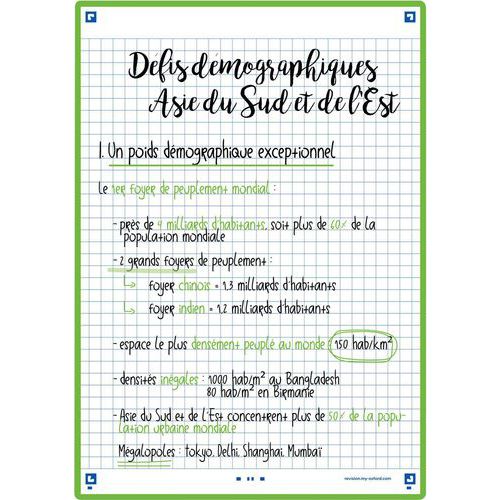 Défis démographiques
Asie du Sud et de l'Est
1. Un poids démographique exceptionnel
Le 1er foyer de peuplement mondial :
- près de 4 milliards d'habitants, soit plus de 60% de la
population mondiale
- 2 grands foyers de peuplement :
↳ foyer chinois = 1,3 milliards d'habitants
↳ foyer indien = 1,2 milliards d'habitants
- espace le plus densément peuplé au monde : 150 hab/km²
- densités inégales : 1000 hab/m² au Bangladesh
80 hab/m² en Birmanie
- Asie du Sud et de l'Est concentrent plus de 50% de la popu-
lation urbaine mondiale
Mégalopoles : tokyo, Delhi, Shanghai, Mumbaï
revision.my-oxford.com